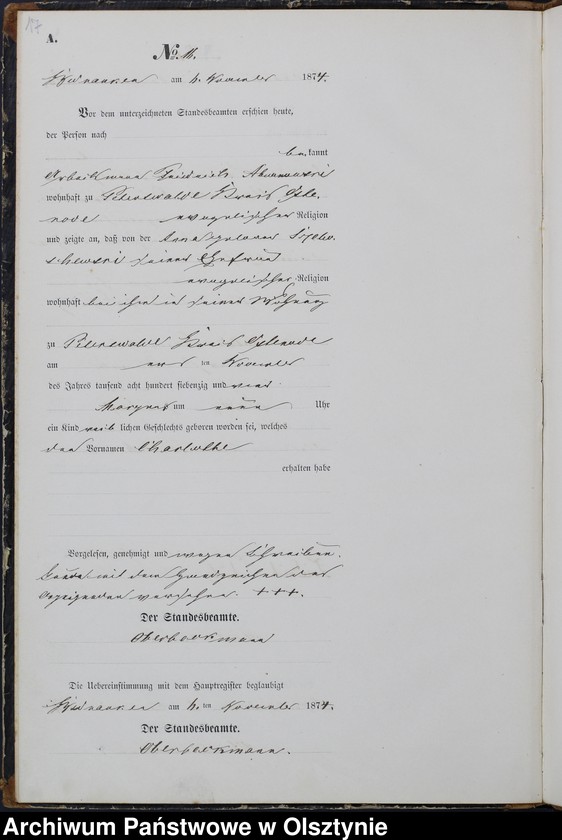 A.
No. 11.
am 4. November 1874.
Vor dem unterzeichneten Standesbeamten erschien heute,
der Person nach
bekannt
Arbeitsmann Friedrich
wohnhaft zu Peterswalde Kreis Oste-
rode evangelischer Religion
und zeigte an, daß von der Anna geborene
seiner Ehefrau
evangelischer Religion
wohnhaft bei ihm in seiner Wohnung
zu Peterswalde Kreis Osterode
am ten November
des Jahres tausend acht hundert siebenzig und vier
Morgens um neun Uhr
ein Kind weiblichen Geschlechts geboren worden sei, welches
den Vornamen Charlotte
erhalten habe
Vorgelesen, genehmigt und wegen Schreibens-
kunde mit dem Handzeichen des
Anzeigenden versehen. +++.
Der Standesbeamte.
Oberbeckmann
Die Uebereinstimmung mit dem Hauptregister beglaubigt
am 4. ten November 1874.
Der Standesbeamte.
Oberbeckmann.
Archiwum Państwowe w Olsztynie